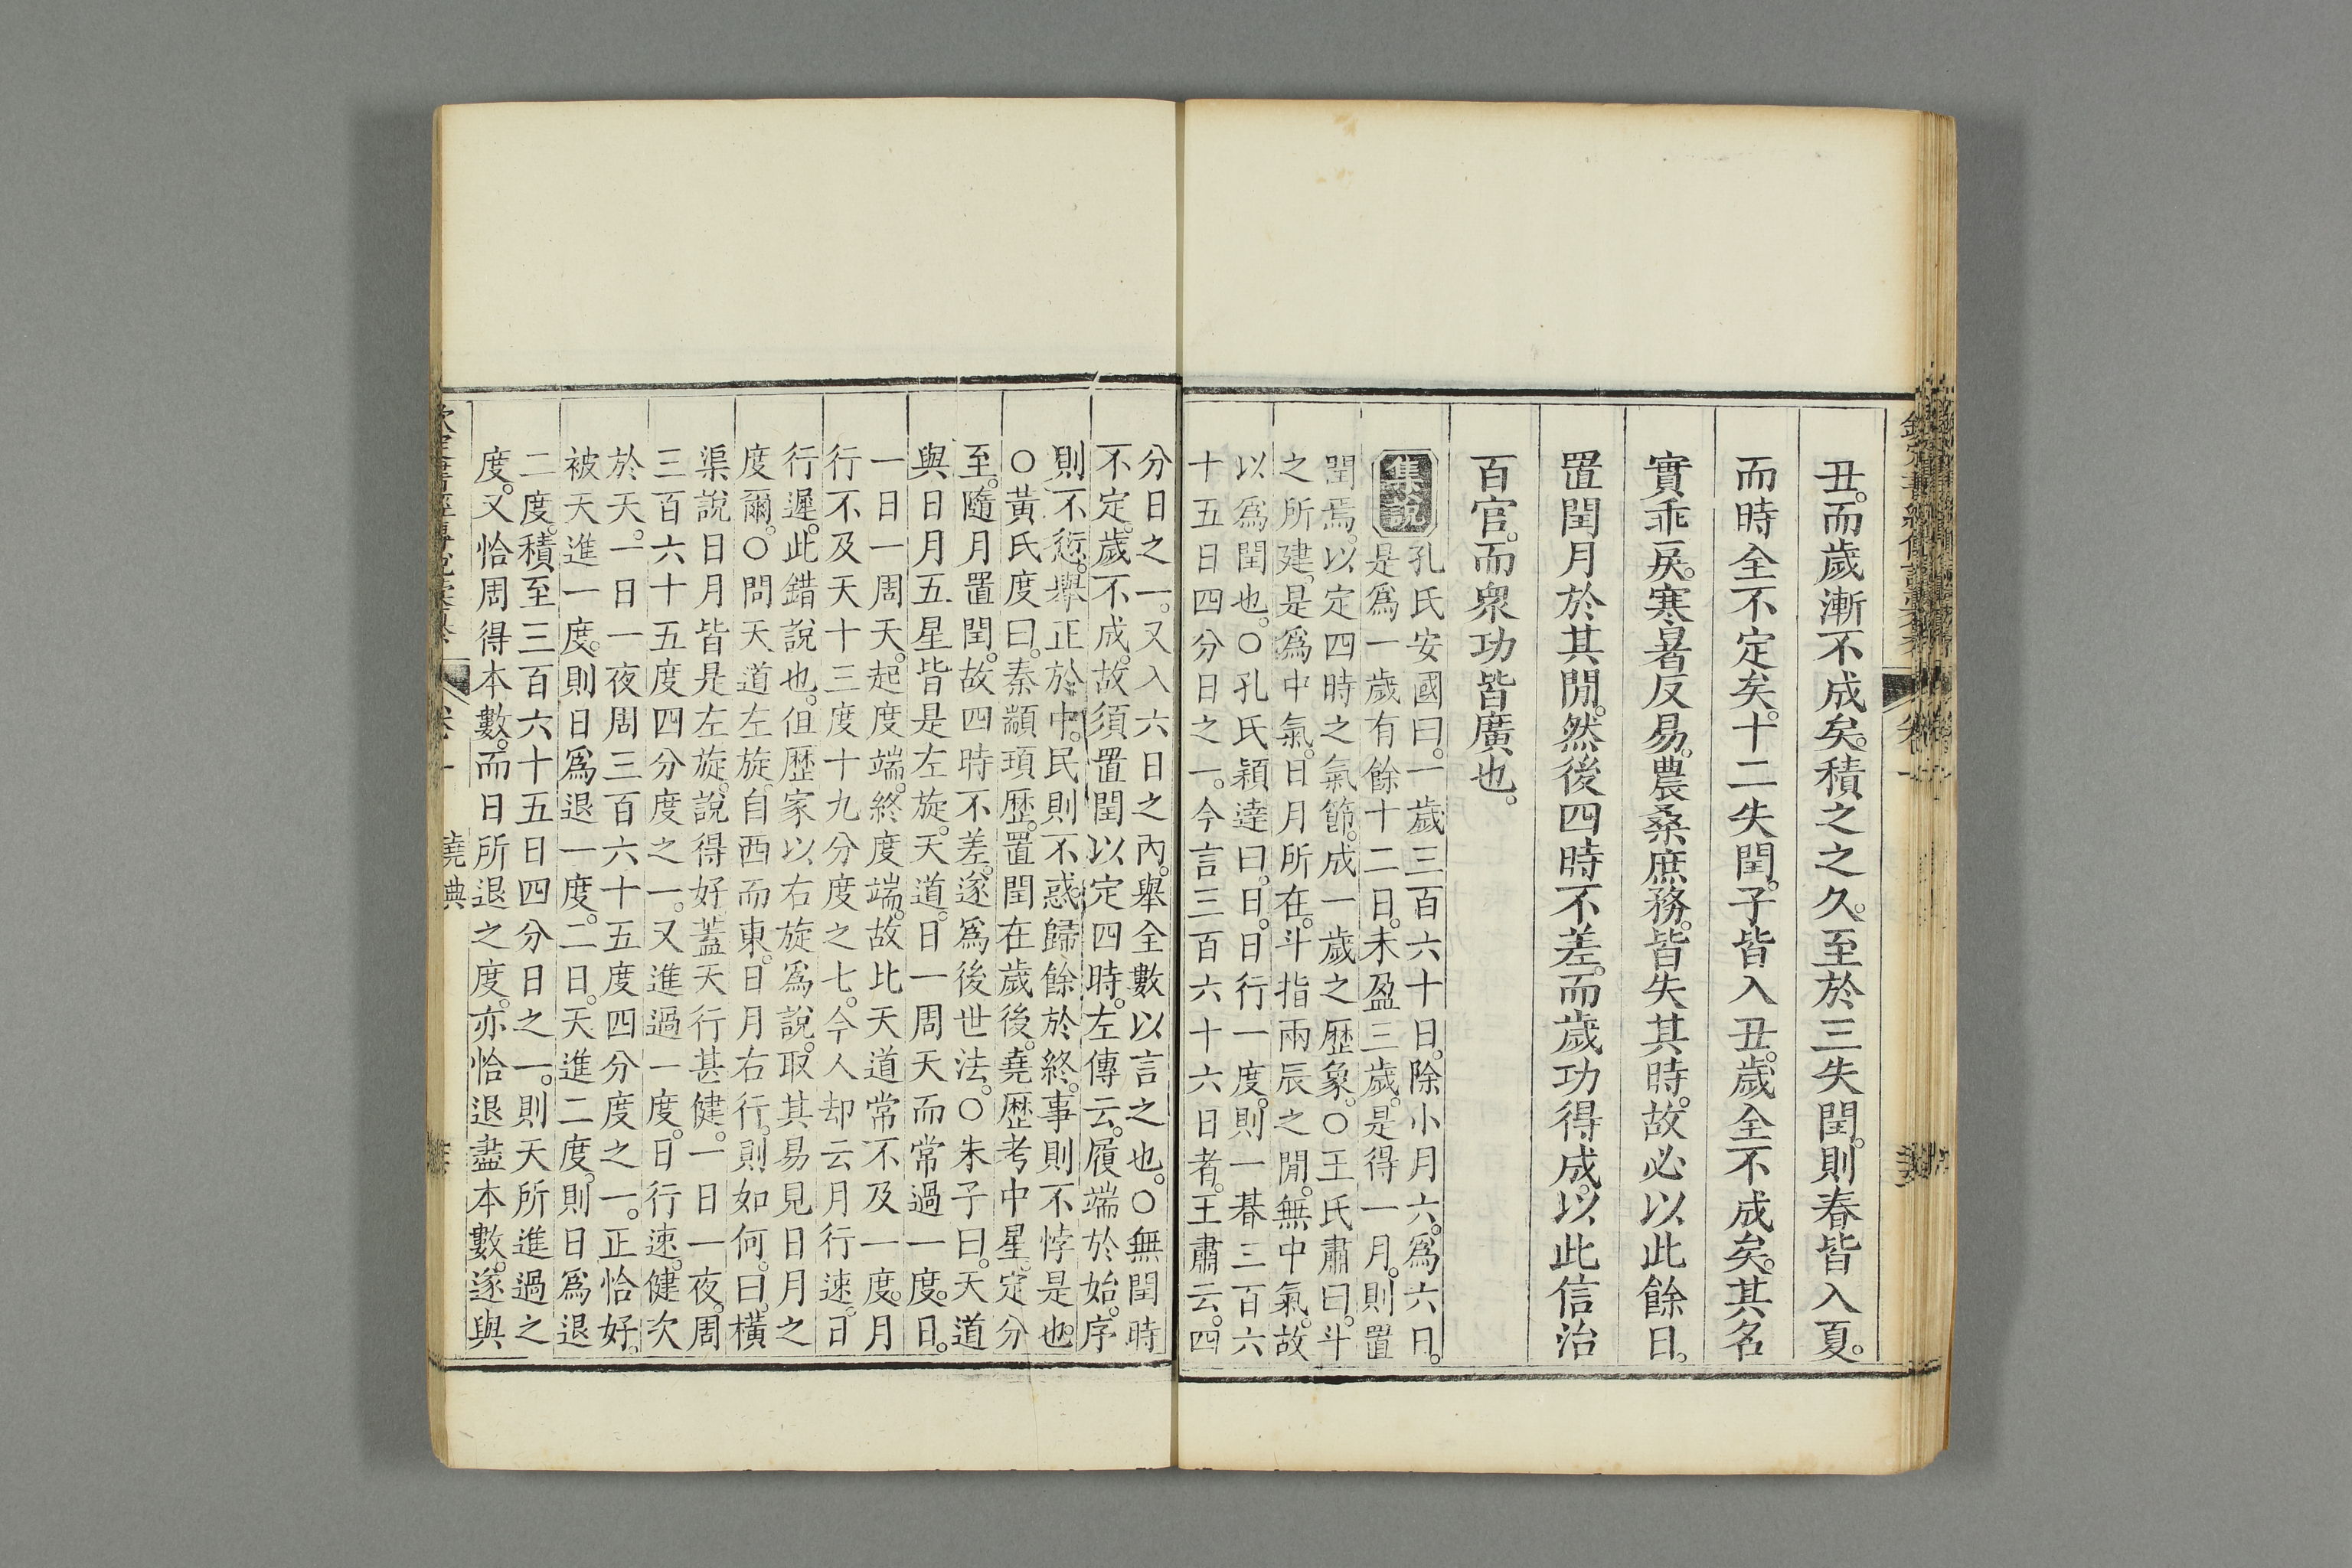 丑。而歲漸不成矣。積之之久。至於三失閏。則春皆入夏。
而時全不定矣。十二失閏。子皆入丑。歲全不成矣。其名
實乖戾。寒暑反易。農桑庶務。皆失其時。故必以此餘日。
置閏月於其閒。然後四時不差。而歲功得成。以此信治
百官。而衆功皆廣也。
集說
孔氏安國曰。一歲三百六十日。除小月六。爲六日。
是爲一歲有餘十二日。未盈三歲。是得一月。則置
閏焉。以定四時之氣節。成一歲之歷象。○王氏肅曰。斗
之所建。是爲中氣。日月所在。斗指兩辰之閒。無中氣。故
以爲閏也。○孔氏穎達曰。日。日行一度。則一朞三百六
十五日四分日之一。今言三百六十六日者。王肅云。四
分日之一。又入六日之內。舉全數以言之也。○無閏時
不定。歲不成。故須置閏以定四時。左傳云。履端於始。序
則不愆。舉正於中。民則不惑。歸餘於終。事則不悖是也。
○黃氏度曰。秦顓頊歷。置閏在歲後。堯歷考中星。定分
至。隨月置閏。故四時不差。遂爲後世法。○朱子曰。天道
與日月五星皆是左旋。天道。日一周天而常過一度。日。
一日一周天。起度端。終度端。故比天道常不及一度。月
行不及天十三度十九分度之七。今人却云月行速。日
行遲。此錯說也。但歷家以右旋爲說。取其易見日月之
度爾。○問天道左旋。自西而東。日月右行。則如何。曰。橫
渠說日月皆是左旋。說得好。蓋天行甚健。一日一夜。周
三百六十五度四分度之一。又進過一度。日行速。健次
於天。一日一夜周三百六十五度四分度之一。正恰好。
被天進一度。則日爲退一度。二日。天進二度。則日爲退
二度。積至三百六十五日四分日之一。則天所進過之
度。又恰周得本數。而日所退之度。亦恰退盡本數。遂與
欽定書經傳說彙纂 卷一 堯典